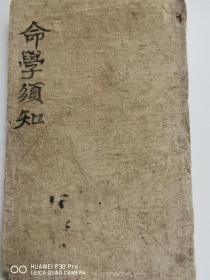 命學須知
HUAWEI P30 Pro
LEICA QUAD CAMERA